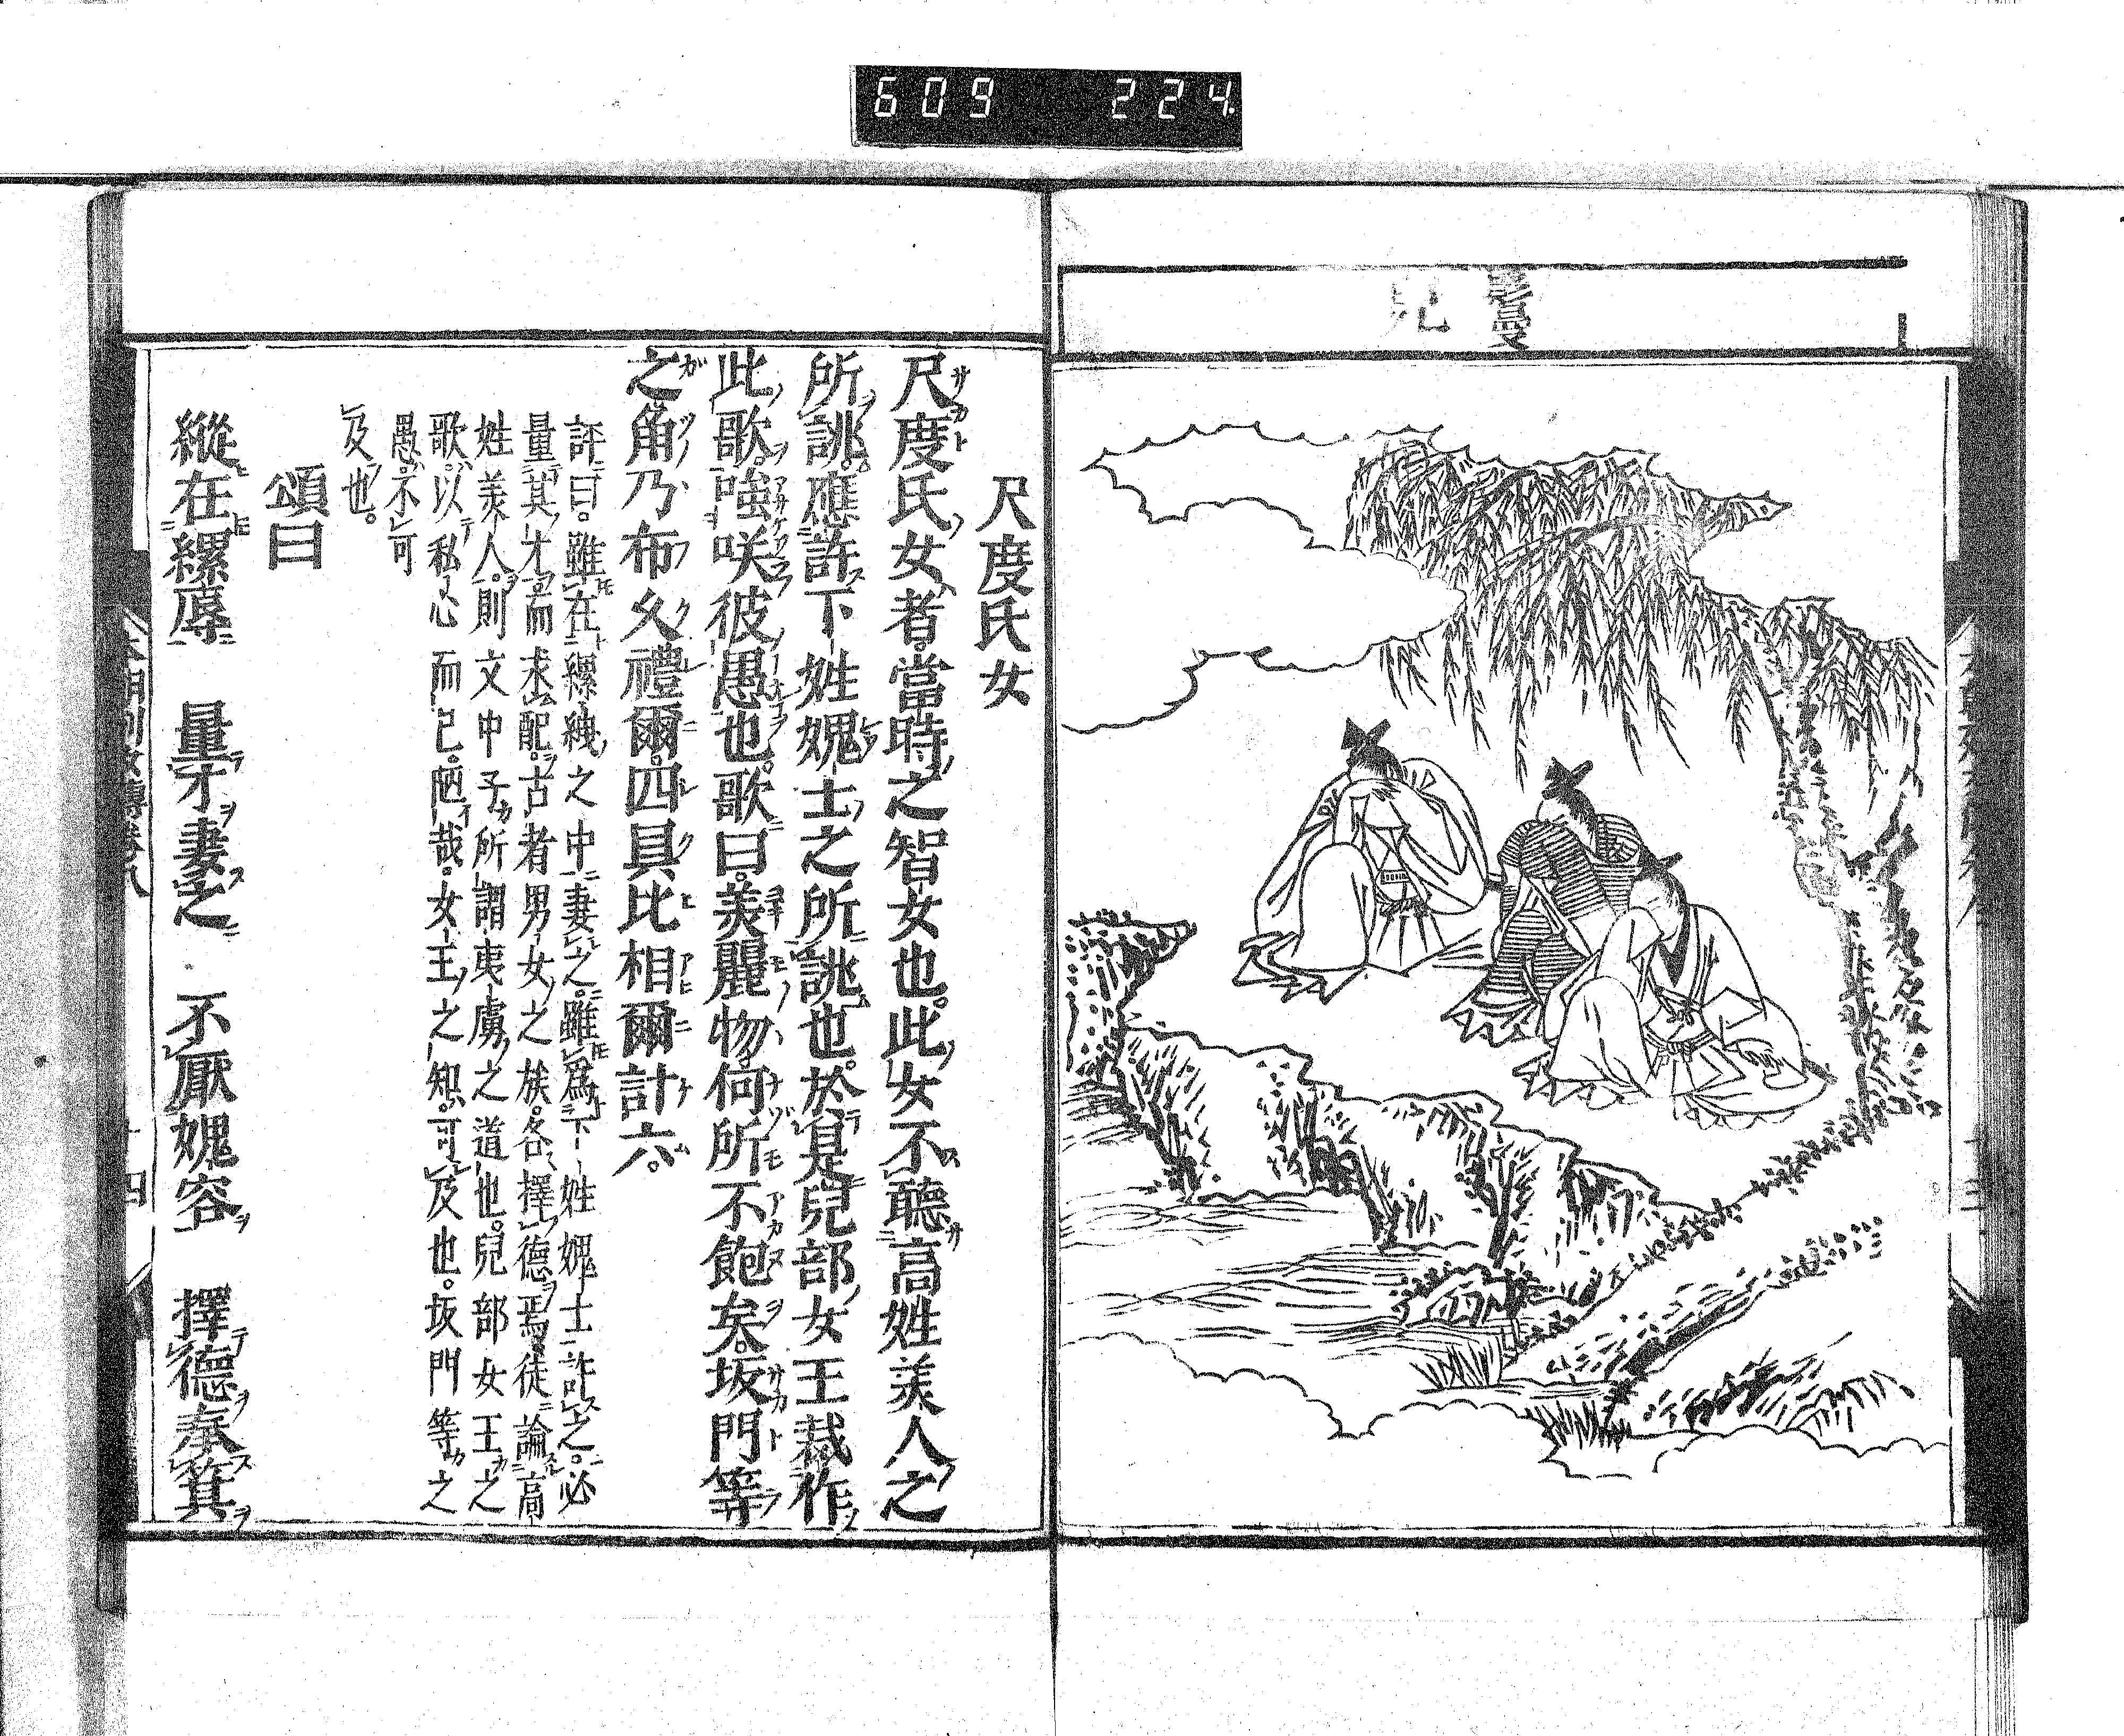 609 224
尺度氏女
尺度氏女者。當時之智女也。此女不聽高姓美人之
所誂。應許下姓媿士之所誂也。於是兒部女王裁作
此歌。嗤咲彼愚也。歌曰。美麗物何所不飽矣。坂門等
之角乃布久禮爾。四具比相爾計六。
評曰。雖在縲絏之中妻之。雖爲下姓媿士許之。必
量其才而求配。古者男女之族。各擇德焉。徒論高
姓美人。則文中子所謂夷虜之道也。兒部女王之
歌。以私心而已。陋哉。女王之知。可及也。坂門等之
愚。不可
及也。
頌曰
縱在縲辱 量才妻之 不厭媿容 擇德奉箕